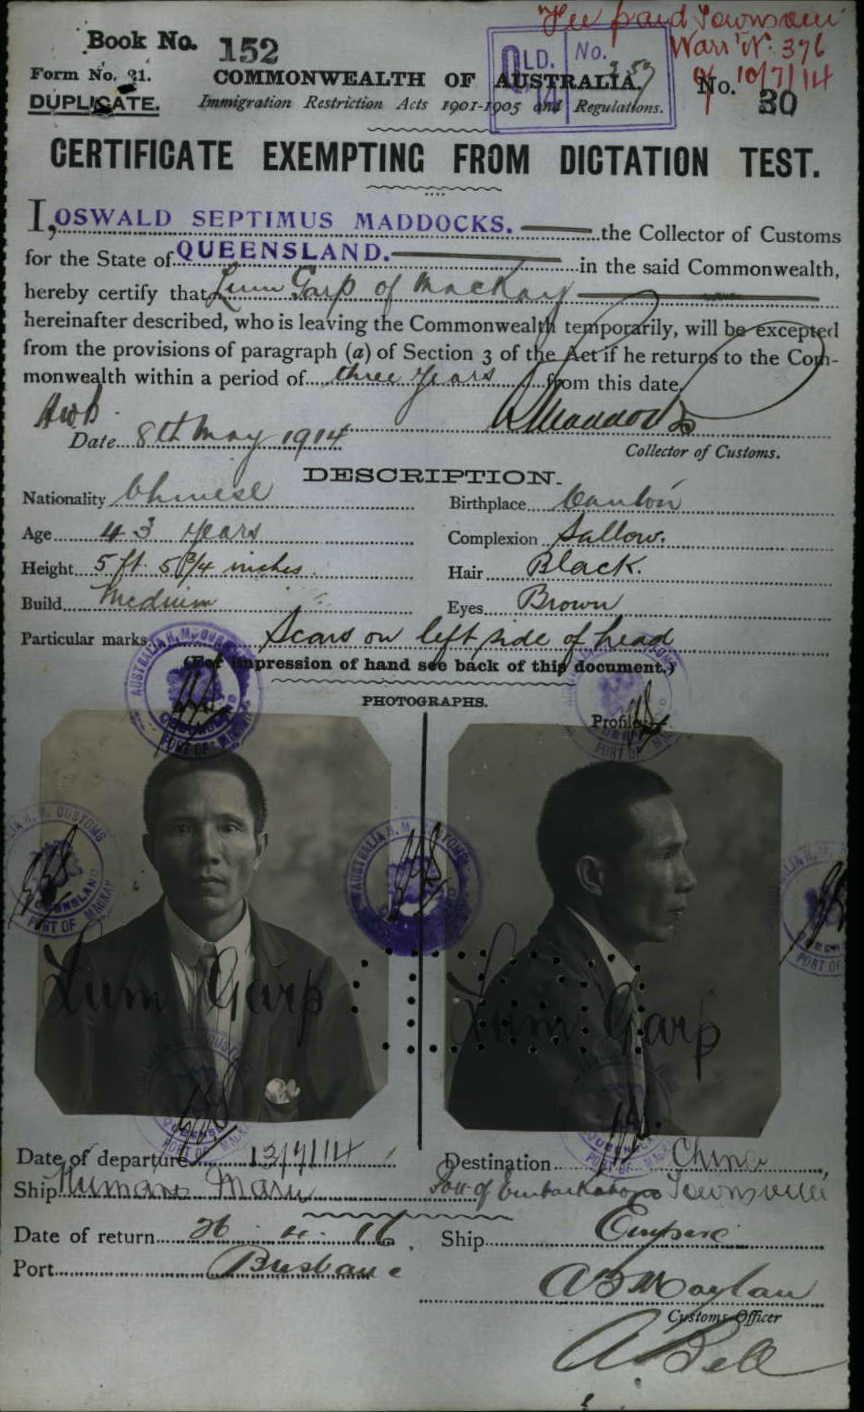 Fee paid Townsville
Book No. 152
Warrt No. 376
of 10/7/14
QLD. No.
Form No. 21.
COMMONWEALTH OF AUSTRALIA.
No. 30
DUPLICATE.
Immigration Restriction Acts 1901-1905 and Regulations.
CERTIFICATE EXEMPTING FROM DICTATION TEST.
I, OSWALD SEPTIMUS MADDOCKS. the Collector of Customs
for the State of QUEENSLAND. in the said Commonwealth,
hereby certify that Lum Garp of Mackay
hereinafter described, who is leaving the Commonwealth temporarily, will be excepted
from the provisions of paragraph (a) of Section 3 of the Act if he returns to the Com-
monwealth within a period of three years from this date
Date 8th May 1914
Collector of Customs.
DESCRIPTION.
Nationality Chinese Birthplace Canton
Age 43 years Complexion Sallow.
Height 5 ft. 5 3/4 inches. Hair Black.
Build Medium Eyes Brown
Particular marks Scars on left side of head
(For impression of hand see back of this document.)
PHOTOGRAPHS.
Profile
AUSTRALIA H.M. CUSTOMS QUEENSLAND PORT OF MACKAY
Lum Garp Lum Garp
Date of departure 13/7/14 Destination China
Ship Kumano Maru Port of Embarkation Townsville
Date of return 26.4.16. Ship Empire
Port Brisbane
Customs Officer
A Bell